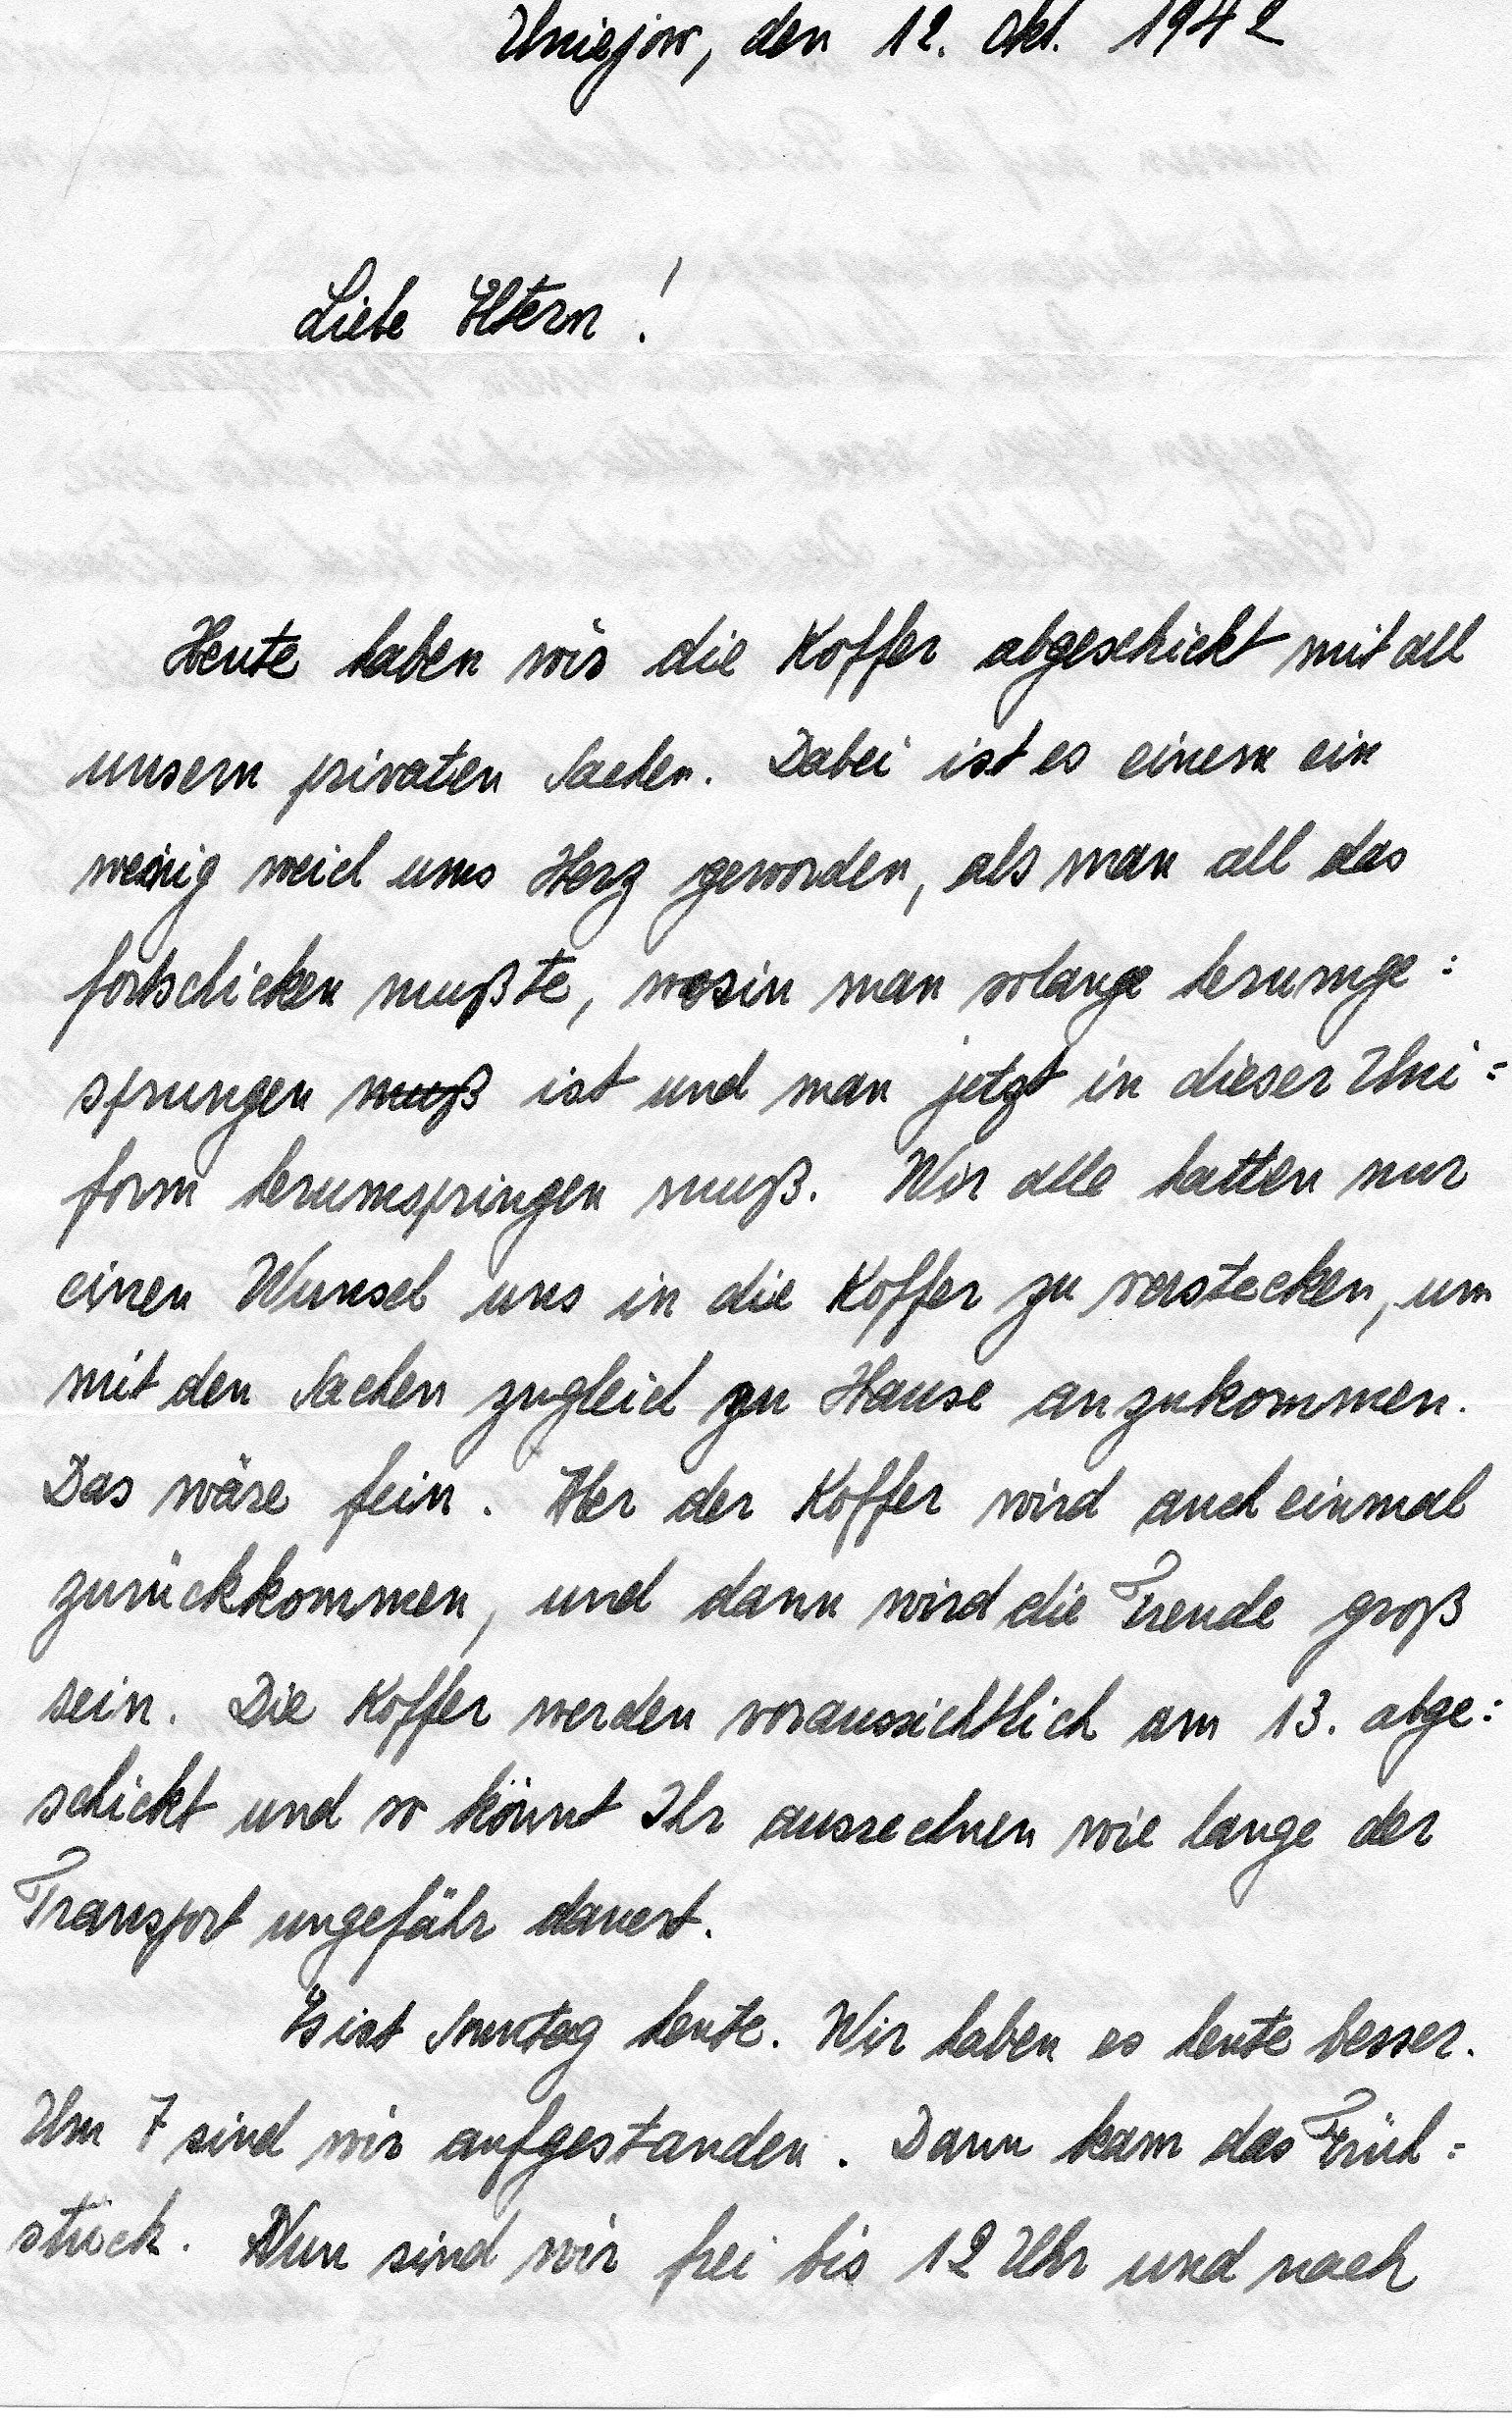 Uniejow, den 12. Okt. 1942
Liebe Eltern!
Heute haben wir die Koffer abgeschickt mit all
unsern privaten Sachen. Dabei ist es einem ein
wenig weich ums Herz geworden, als man all das
fortschicken mußte, worin man solange herumge=
sprungen muß ist und man jetzt in dieser Uni=
form herumspringen muß. Wir alle hatten nur
einen Wunsch uns in die Koffer zu verstecken, um
mit den Sachen zugleich zu Hause anzukommen.
Das wäre fein. Aber der Koffer wird auch einmal
zurückkommen, und dann wird die Freude groß
sein. Die Koffer werden voraussichtlich am 13. abge=
schickt und so könnt Ihr ausrechnen wie lange der
Transport ungefähr dauert.
Es ist Sonntag heute. Wir haben es heute besser.
Um 7 sind wir aufgestanden. Dann kam das Früh=
stück. Nun sind wir frei bis 12 Uhr und nach